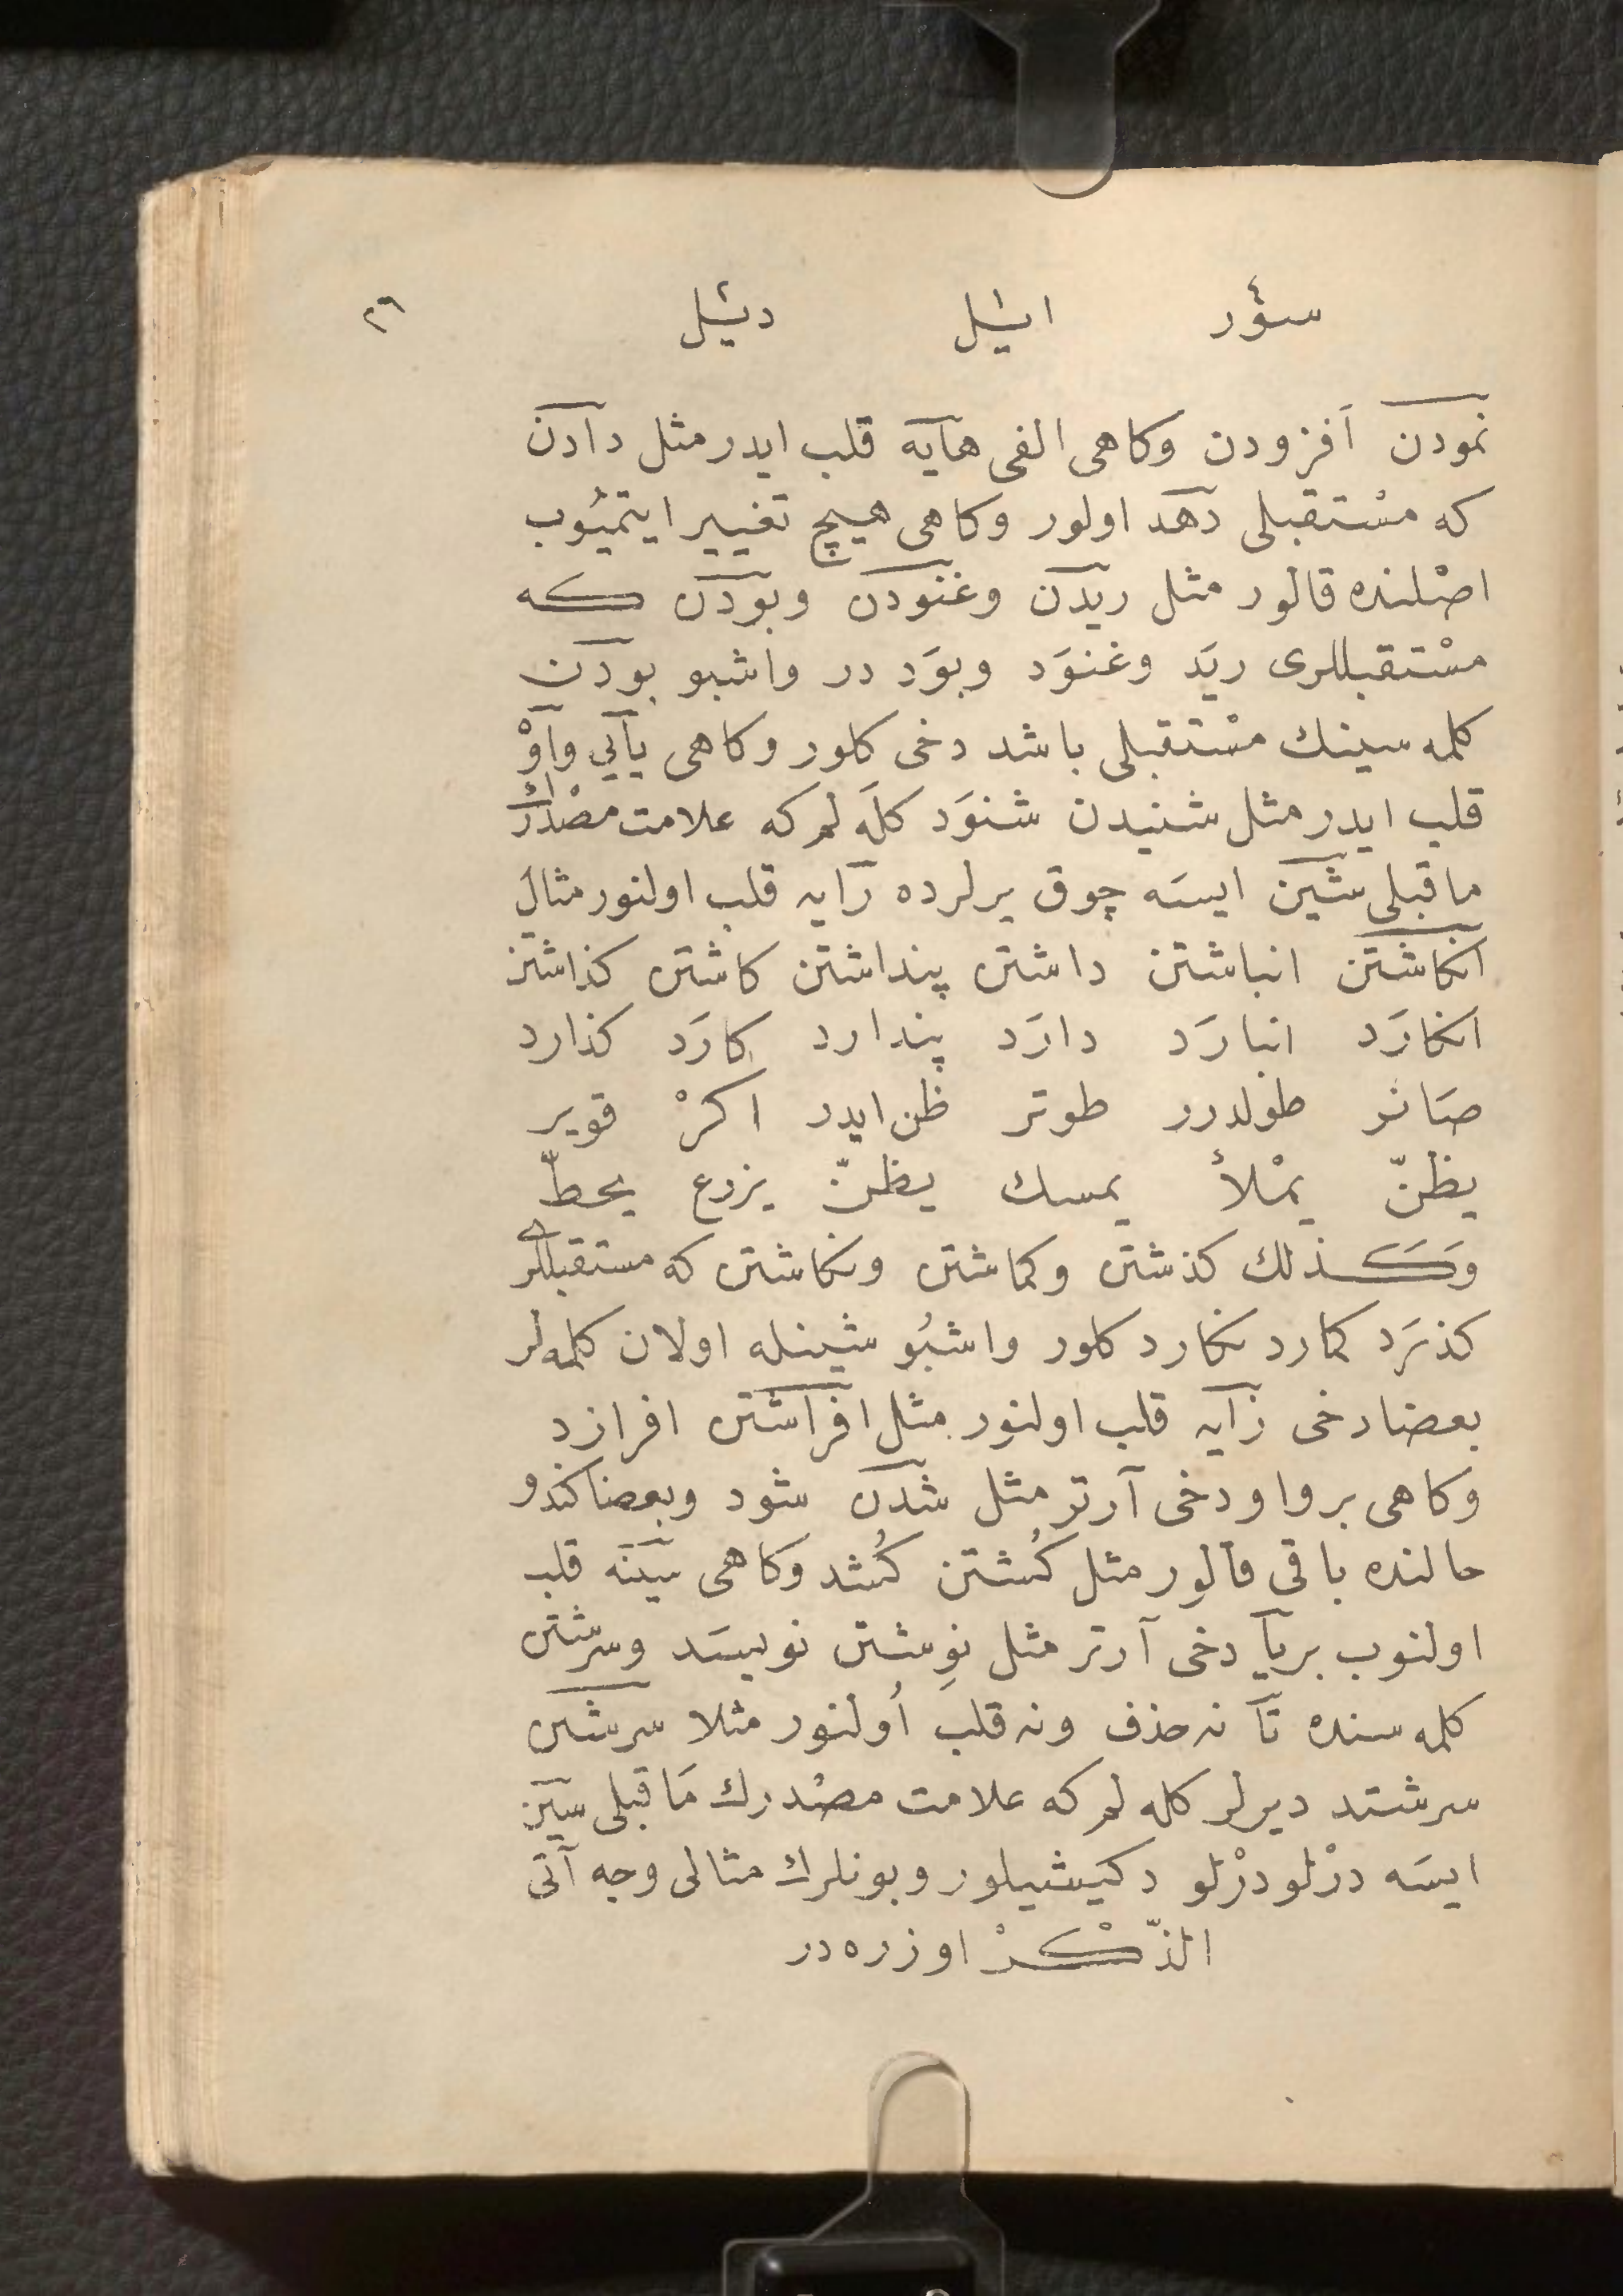 سؤر ایشل دیشل ٢٦
نمودن اَفزودن وکاهی الفی هایه قلب ایدر مثل دادن
که مسْتقبلی دهد اولور وکاهی هیچ تغییر ایتمیُوب
اصْلنده قالور مثل ریدن وغنودن وبودن که
مسْتقبللری ریَد وغنوَد وبوَد در واشبو بودن
کلمه سینك مسْتقبلی باشد دخی کلور وکاهی یایی واوْ
قلب ایدر مثل شنیدن شنوَد کلَه لر که علامت مصْدرك
ماقبلی شین ایسَه چوق یرلرده رایه قلب اولنور مثال
انکاشتن انباشتن داشتن پنداشتن کاشتن کذاشتن
انکارَد انبارَد دارَد پندارد کارَد کذارد
صَانر طولدرر طوتر ظن ایدر اکرْ قویر
یظنّ یمْلأ یمسك یظنّ یزرع یحطّ
وَکَذلك کذشتن وکماشتن ونکاشتن که مستقبللری
کذرَد کمارد نکارد کلور واشبُو شینله اولان کلمه لر
بعضا دخی زایه قلب اولنور مثل افراشتن افرازد
وکاهی بر واو دخی آرتر مثل شدن شود وبعضا کندو
حالنده باقی قالور مثل کُشتن کُشد وکاهی سینه قلب
اولنوب بریا دخی آرتر مثل نوِشتن نویسَد وسرشتن
کلمه سنده تا نه حذف ونه قلب اُولنور مثلا سرشتن
سرشتد دیرلر کله لر که علامت مصْدرك مَاقبلی سین
ایسَه درْلو درْلو دکیشیلور وبونلرك مثالی وجه آتی
الذّکرْ اوزره در